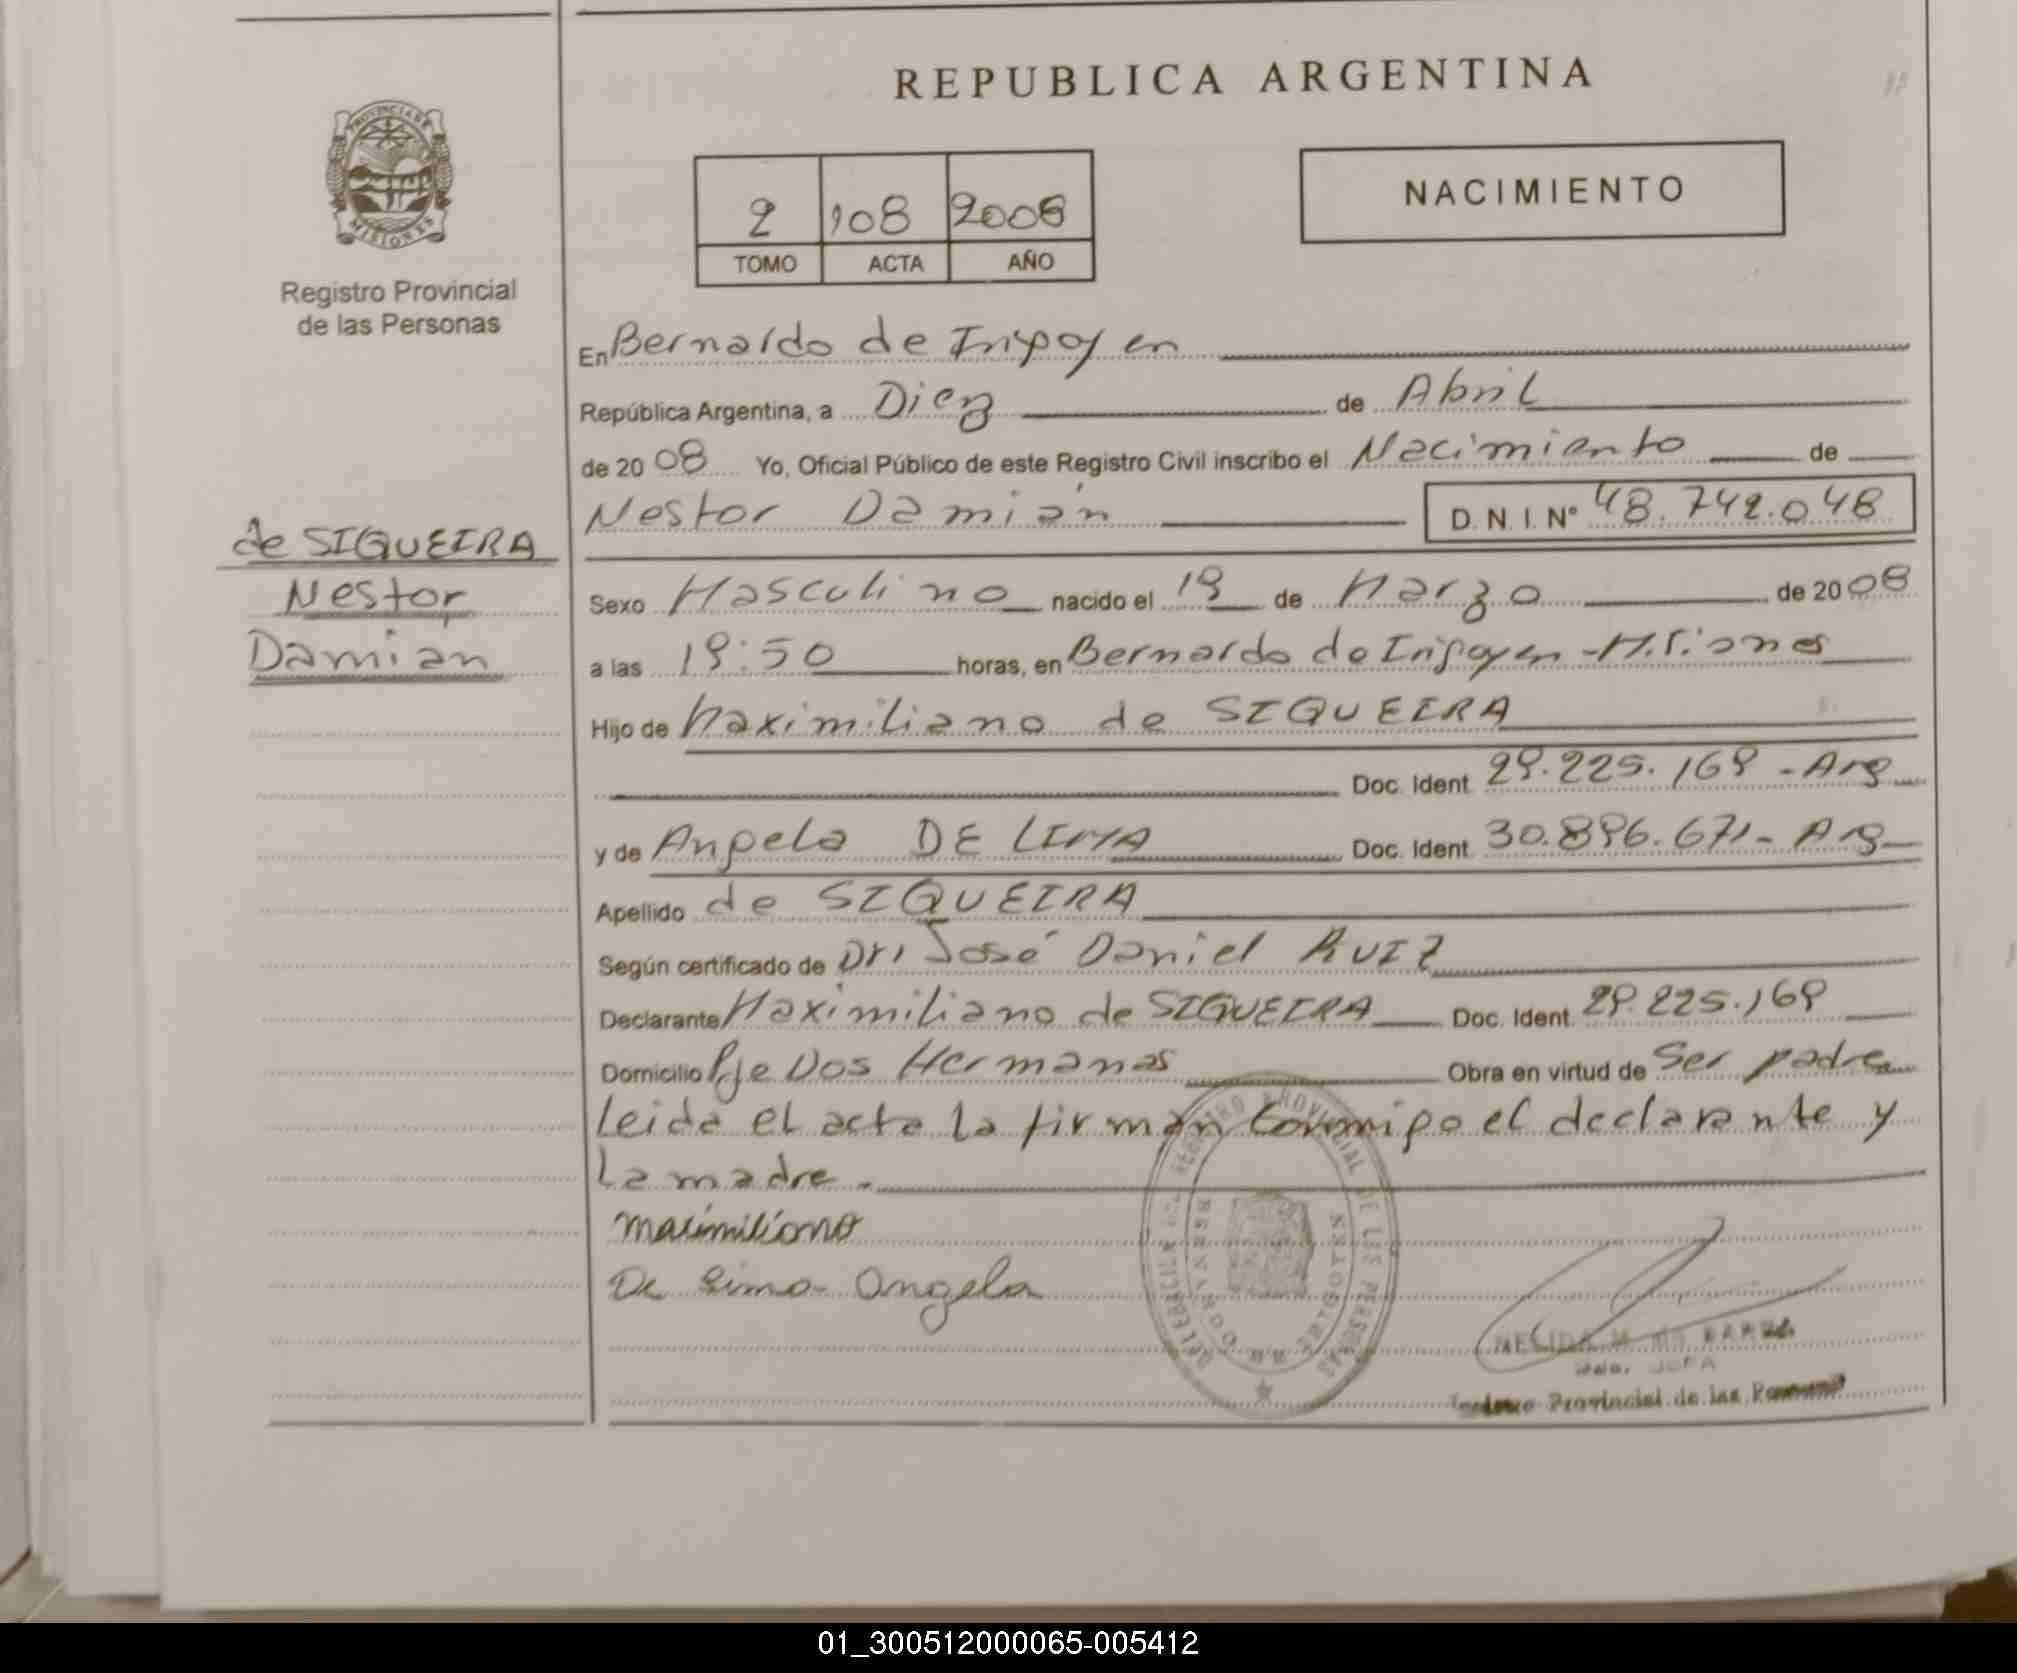 REPUBLICA ARGENTINA
PROVINCIA DE
MISIONES
Registro Provincial
de las Personas
2 108 2008
TOMO ACTA AÑO
NACIMIENTO
En Bernardo de Irigoyen
República Argentina, a Diez de Abril
de 20 08 Yo, Oficial Público de este Registro Civil inscribo el Nacimiento de
Nestor Damián D.N.I. Nº 48.742.048
de SIQUEIRA
Nestor
Damian
Sexo Masculino nacido el 19 de Marzo de 20 08
a las 19:50 horas, en Bernardo de Irigoyen - Misiones
Hijo de Maximiliano de SIQUEIRA
Doc. Ident. 29.225.169 - Arg
y de Angela DE LIMA Doc. Ident. 30.896.671 - Arg
Apellido de SIQUEIRA
Según certificado de Dr. José Daniel RUIZ
Declarante Maximiliano de SIQUEIRA Doc. Ident. 29.225.169
Domicilio Pje Dos Hermanas Obra en virtud de Ser padre
Leida el acta la firman conmigo el declarante y
la madre.-
maximiliano
De Lima Angela
REGISTRO PROVINCIAL DE LAS PERSONAS
DELEGACION
MISIONES
NELIDA M.
Provincial de las
01_300512000065-005412